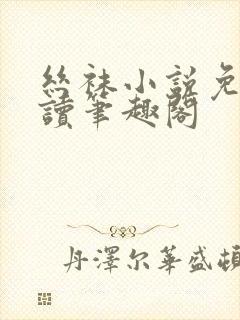 丝袜小説免
讀筆趣閣
丹澤尔華盛頓